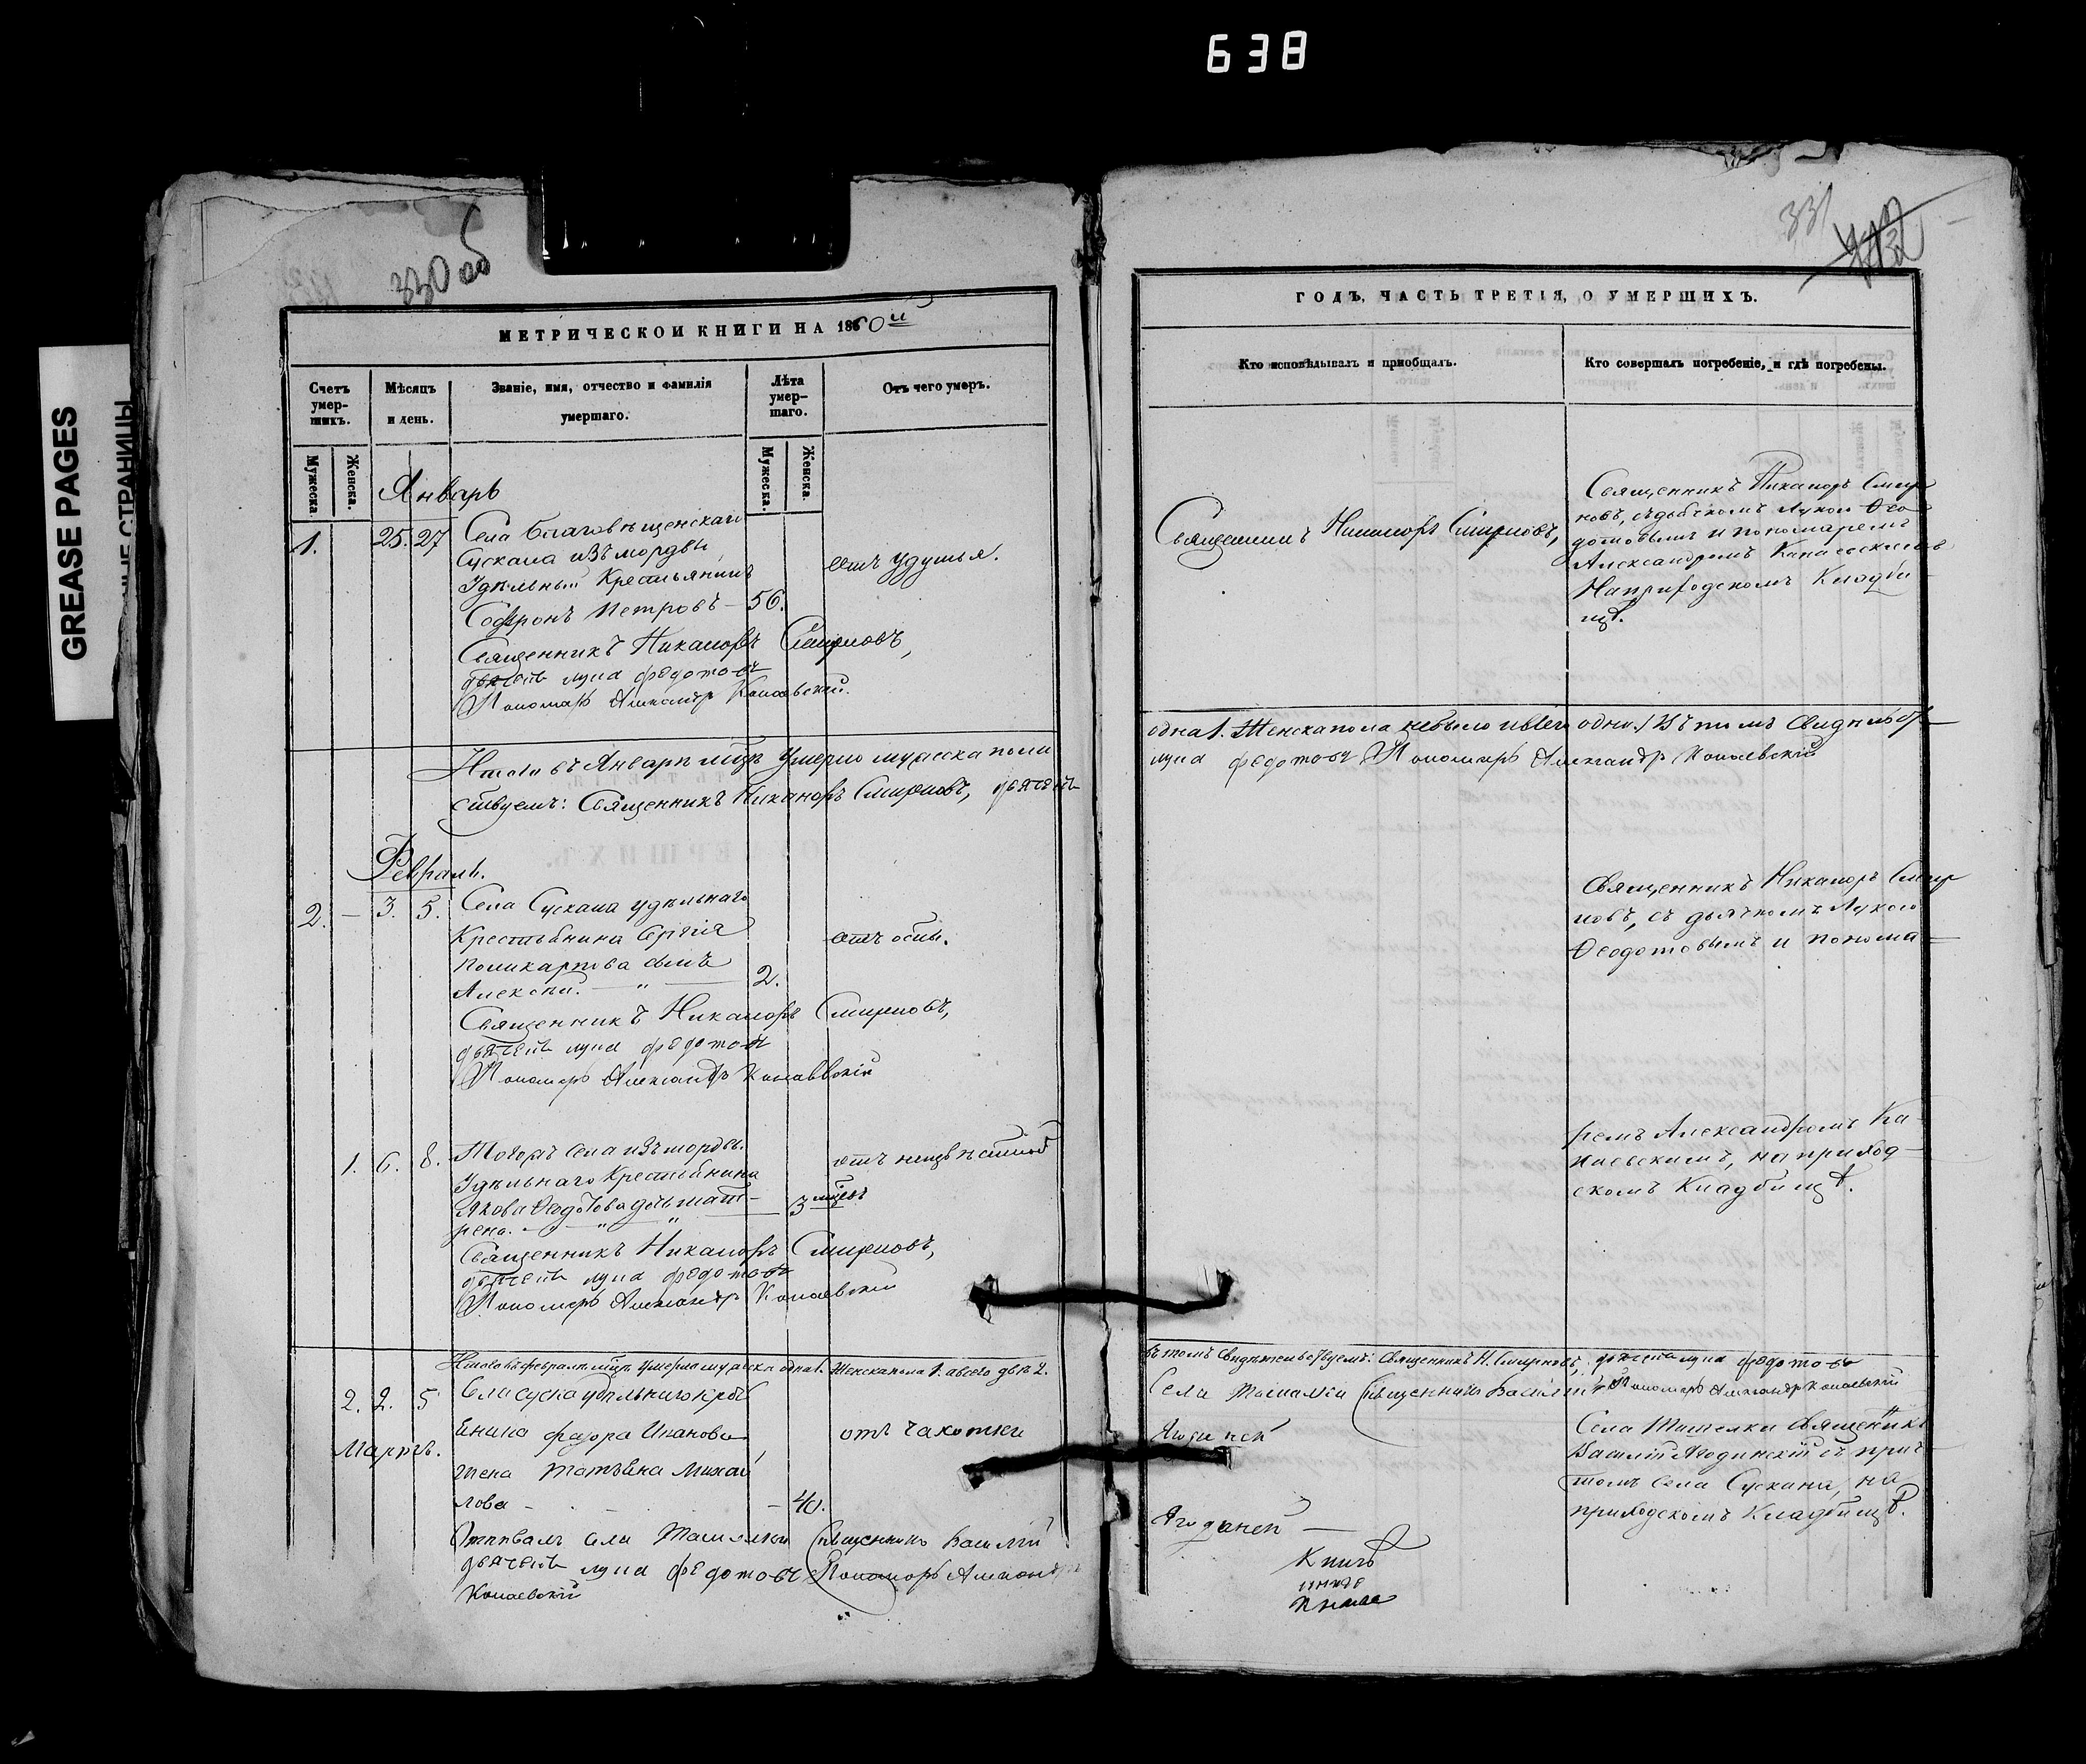 638
GREASE PAGES
330 об
МЕТРИЧЕСКОЙ КНИГИ НА 1860й
Счетъ умер-шихъ.
Мѣсяцъ и день.
Званіе, имя, отчество и фамилія умершаго.
Лѣта умер-шаго.
Отъ чего умеръ.
Мужеска.
Женска.
Мужеска.
Женска.
Январь
1. 25. 27 Села Благовѣщенскаго
Сускана изъ мордвы
Удѣльный Крестьянинъ
Софронъ Петровъ — 56.
отъ удушья.
Священникъ Никаноръ Смирновъ,
дьячекъ лука федотовъ
Пономарь Александръ Канаевскій.
Итого въ Январѣ мцѣ умерло мужеска пола
ствуемъ: Священникъ Никаноръ Смирновъ, дьячекъ
Февраль.
2. — 3. 5. Села Сускана удѣльнаго
Крестьянина Сергія
Поликарпова сынъ
Алексѣй. — " — 2.
отъ оспы.
Священникъ Никаноръ Смирновъ,
дьячекъ лука федотовъ
Пономарь Александръ Канаевскій
1. 6. 8. Тогожъ села изъ мордвы
Удѣльнаго Крестьянина
Якова Ѳедотова дочь мат-
рена. — " — 3 мцевъ
отъ неизвѣстной
Священникъ Никаноръ Смирновъ,
дьячекъ лука федотовъ
Пономарь Александръ Канаевскій
Итого въ февралѣ мцѣ умерло мужеска одна 1. Женска пола 1. а всего двѣ 2.
Мартъ.
2. 2. 5 Села Сускана удѣльнаго крес
янина федора Иванова
жена Татьяна Михай
лова — 40.
отъ чахотки
Отпѣвалъ села Ташолки Священникъ Василій
дьячекъ лука федотовъ Пономарь Александръ
Канаевскій
331
ГОДЪ, ЧАСТЬ ТРЕТІЯ, О УМЕРШИХЪ.
Кто исповѣдывалъ и пріобщалъ.
Кто совершалъ погребеніе, и гдѣ погребены.
Священникъ Никаноръ Смирновъ,
Священникъ Никаноръ Смир
новъ, съ дьячкомъ Лукою Ѳео
дотовымъ и пономаремъ
Александромъ Канаевскимъ
На приходскомъ Кладби
щѣ.
одна 1. Женска пола небыло и всего одно. Въ томъ свидѣтель
лука федотовъ Пономарь Александръ Канаевскій
Священникъ Никаноръ Смир
новъ, съ дьячкомъ Лукою
Ѳеодотовымъ и понома-
ремъ Александромъ Ка-
наевскимъ, на приход-
скомъ Кладбищѣ.
въ томъ свидѣтельствуемъ: Священникъ Н. Смирновъ, дьячекъ лука федотовъ
Села Ташолки Священникъ Василій Пономарь Александръ Канаевскій
Ягодинскій
Села Ташелки Священникъ
Василій Ягодинскій съ прич
томъ села Сускана, на
приходскомъ Кладбищѣ.
Ягодинскій —